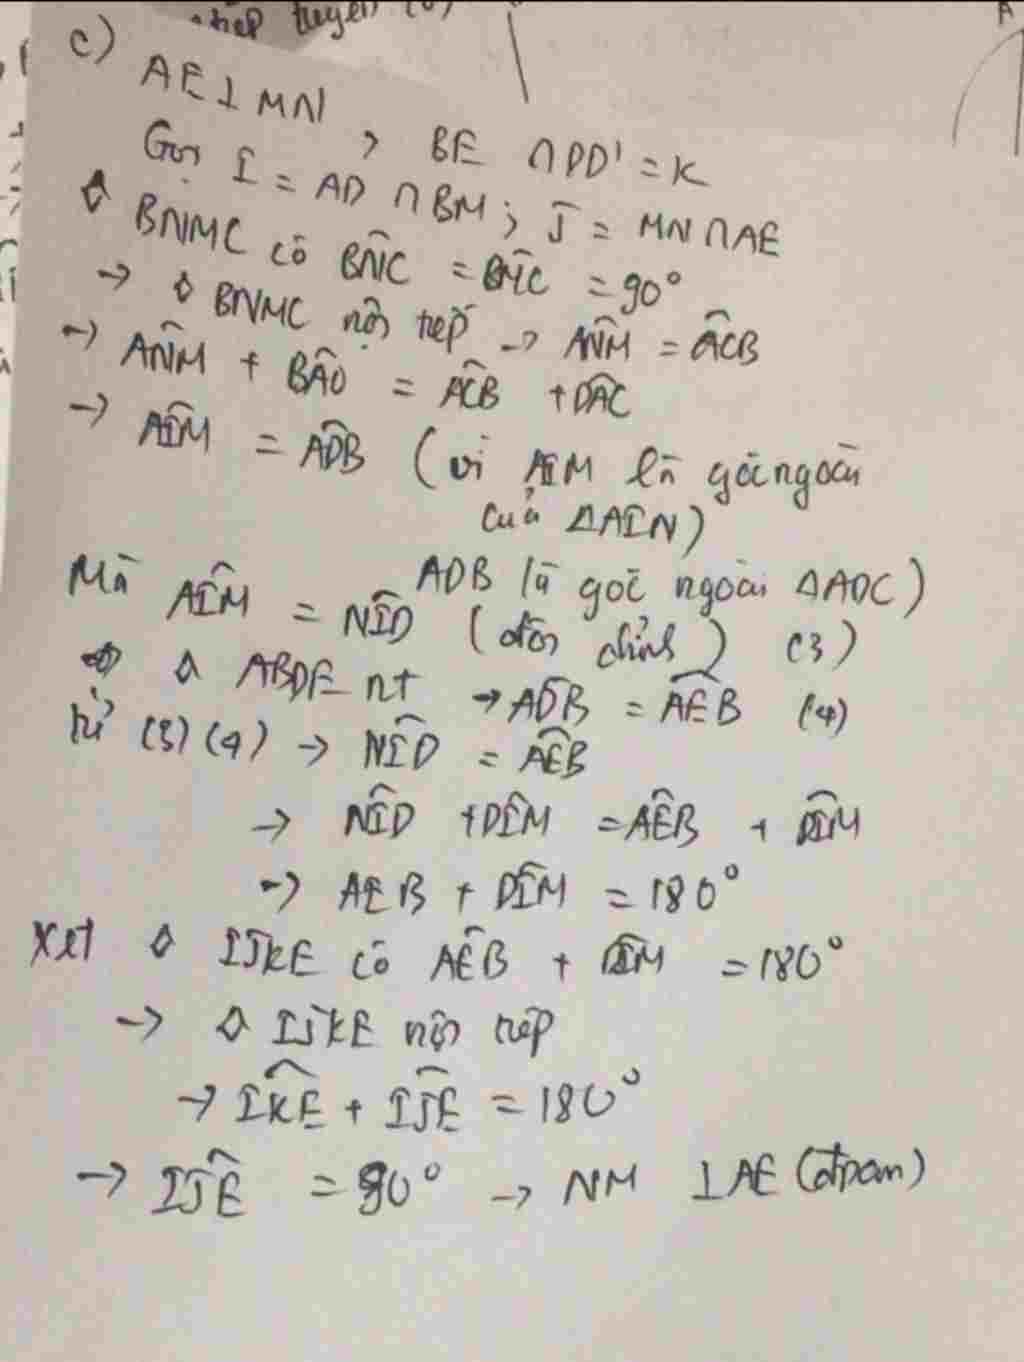 tiếp tuyến (O)
A
c) AE ⊥ MN
, BE ∩ DD' = K
Gọi I = AD ∩ BM ; J = MN ∩ AE
◊ BNMC có BN̂C = BM̂C = 90°
→ ◊ BNMC nội tiếp → AN̂M = AĈB
→ AN̂M + BÂD = AĈB + DÂC
→ AÎM = AD̂B (vì AIM là góc ngoài
của ΔAIN)
ADB là góc ngoài ΔADC)
Mà AÎM = NÎD (đối đỉnh) (3)
◊ ABDE nt → AD̂B = AÊB (4)
từ (3) (4) → NÎD = AÊB
→ NÎD + DÎM = AÊB + DÎM
→ AEB + DÎM = 180°
Xét ◊ IJKE có AÊB + DÎM = 180°
→ ◊ IJKE nội tiếp
→ IK̂E + IĴE = 180°
→ IĴE = 90° → NM ⊥ AE (đpcm)